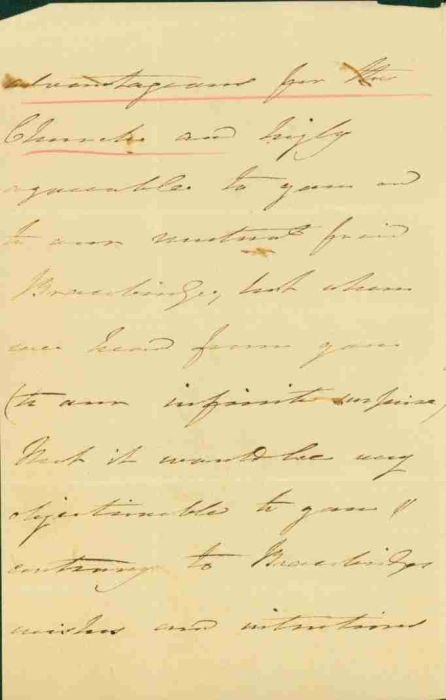 advantageous for the
Church and higly
agreeable to you and
to our mutual frind
Bracebridge, but when
we heard from you
(to our infinite surprise)
that it would be very
objectionable to you &
contrary to Bracebridges
wishes and intentions